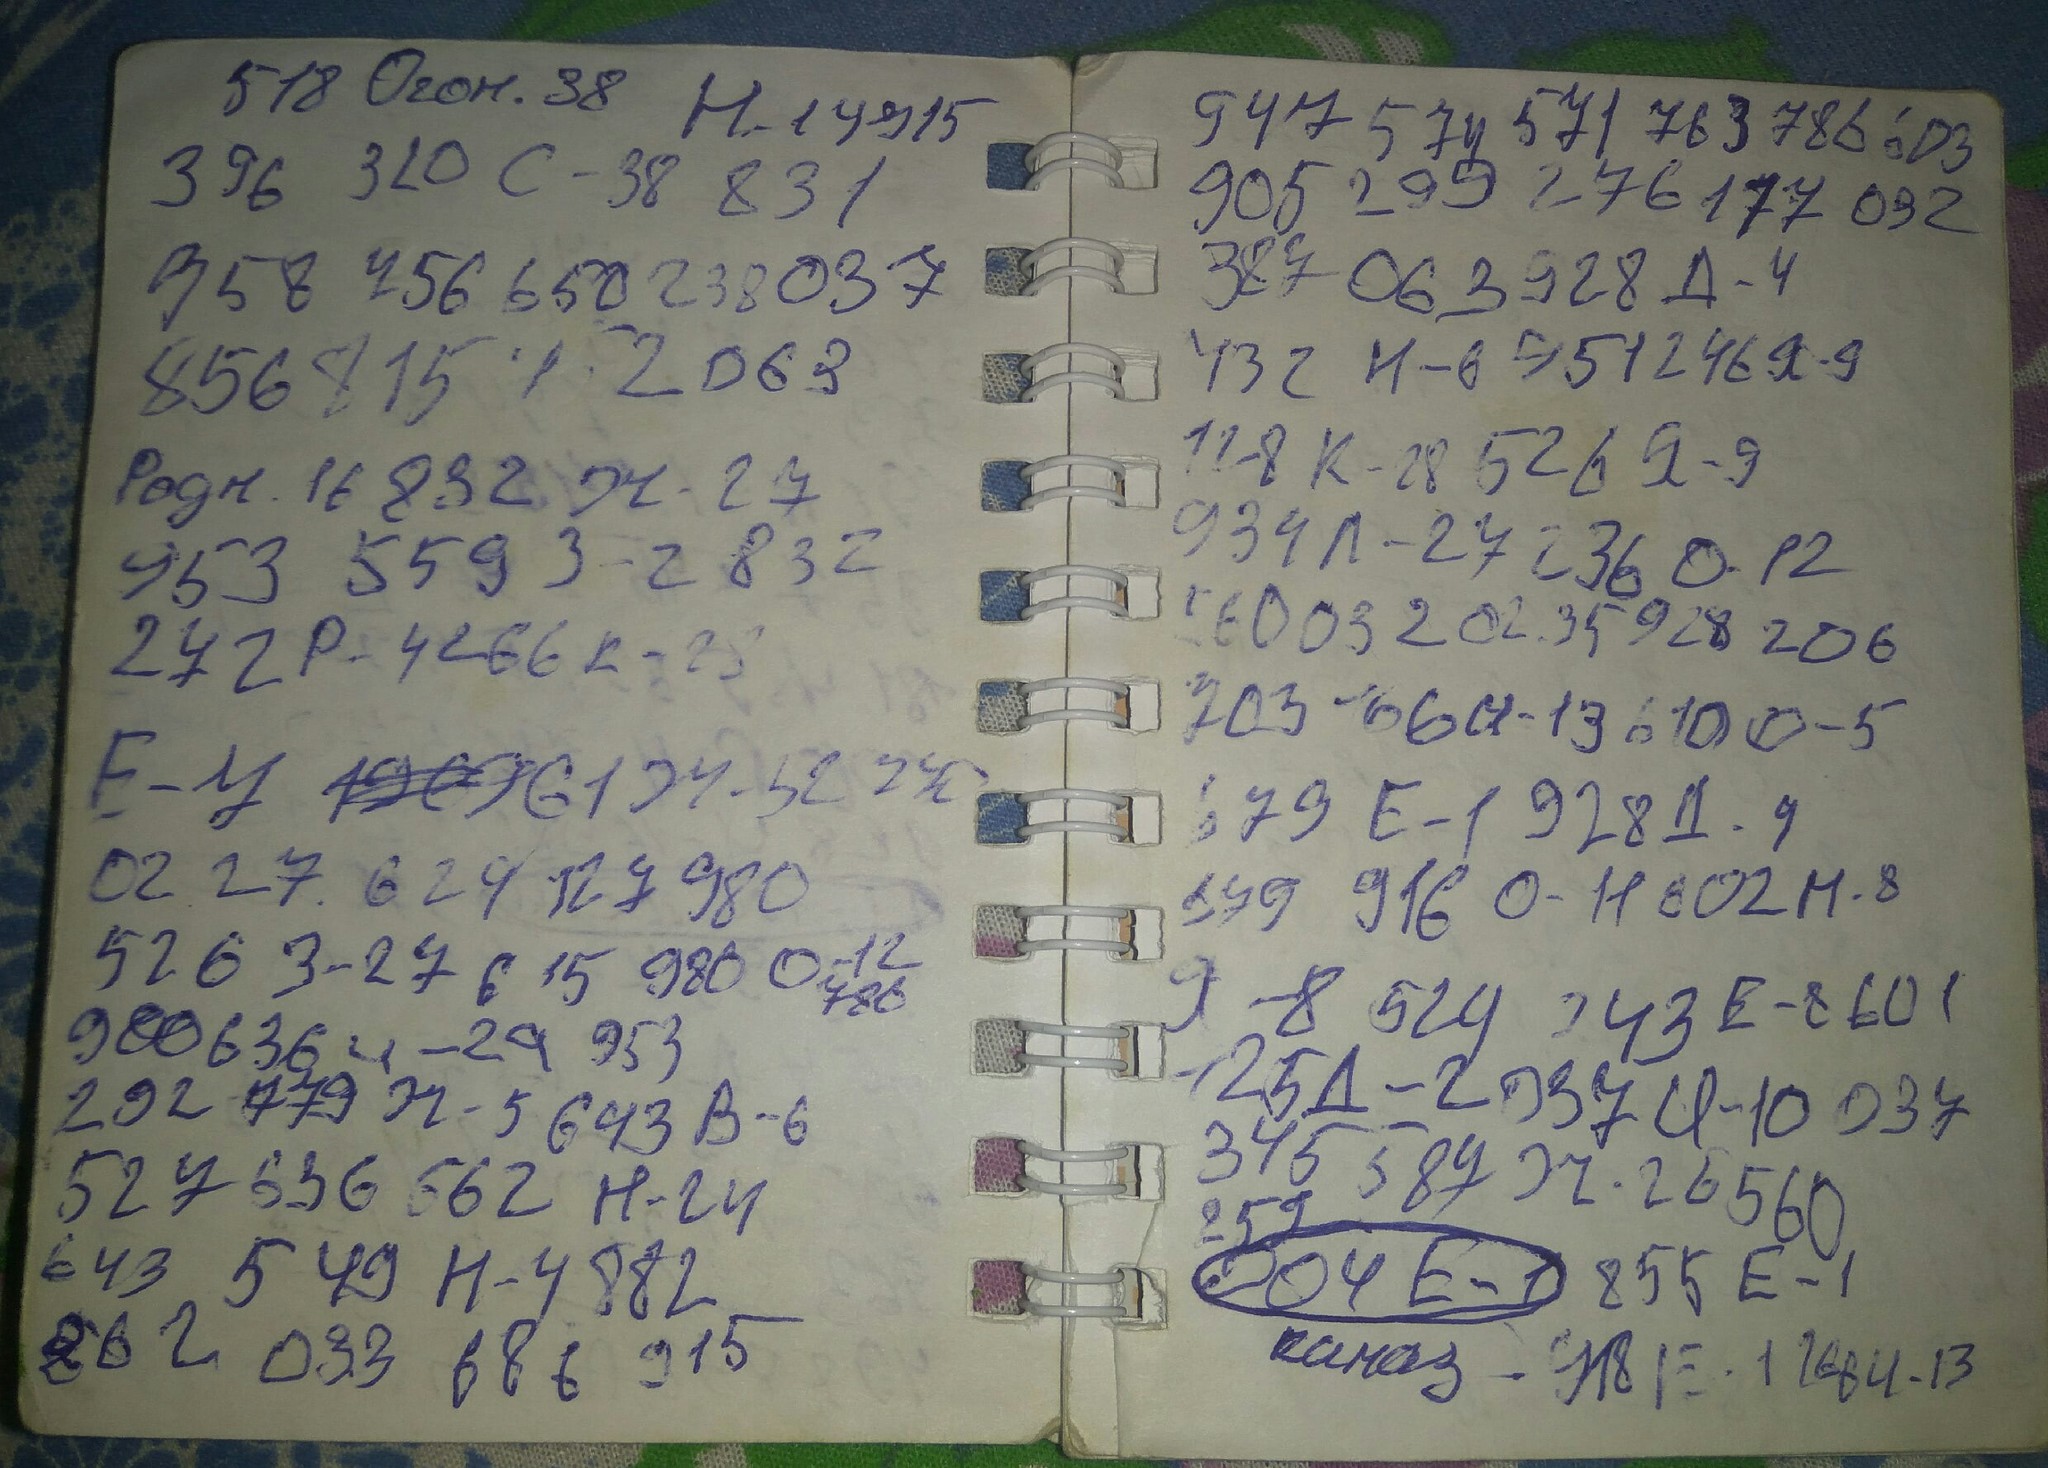 518 Огон. 38 Н-14915
396 310 С-38 831
958 756 650 238 037
856 815 2 063
Родн. 16 832 Ж-27
953 559 З-2 832
272 Р-4266 К-23
Е-У 61 Ж-52
02 27. 624 127 980
526 З-27 615 980 О-12
786
980 636 ч-29 953
292 779 Ж-5 643 В-6
527 636 662 Н-24
643 549 Н-4 882
262 033 686 915
947 574 571 763 786 603
905 299 276 177 092
387 063 928 Д-4
432 Н-6 951 246 Я-9
11-8 К-28 526 Я-9
934 Л-27 236 О-12
560 032 02 35 928 206
703 66 И-13 610 О-5
679 Е-1 928 Д-4
679 916 О-11 602 Н-8
9 -8 524 743 Е-8 601
-25 Д-2 937 Ц-10 037
345 587 Ж-26 560
259
004 Е-1 855 Е-1
каназ - 918 Е-1 266 Ч-13